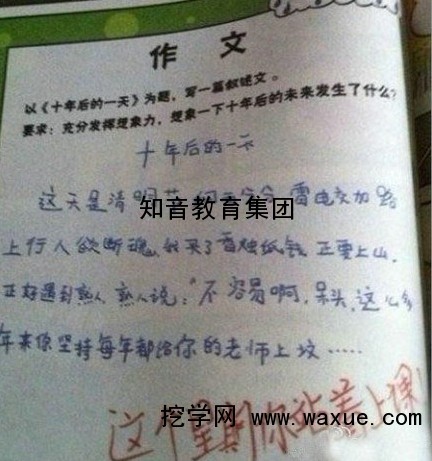 作 文
以《十年后的一天》为题，写一篇叙述文。
要求：充分发挥想象力，想象一下十年后的未来发生了什么？
十年后的一天
这天是清明节 雷电交加 路
知音教育集团
上行人欲断魂，我买了香烛纸钱 正要上山，
正好遇到熟人，熟人说：“不容易啊，呆头，这么多
年来你坚持每年都给你的老师上坟……
这个星期你站着上课！
挖学网 www.waxue.com